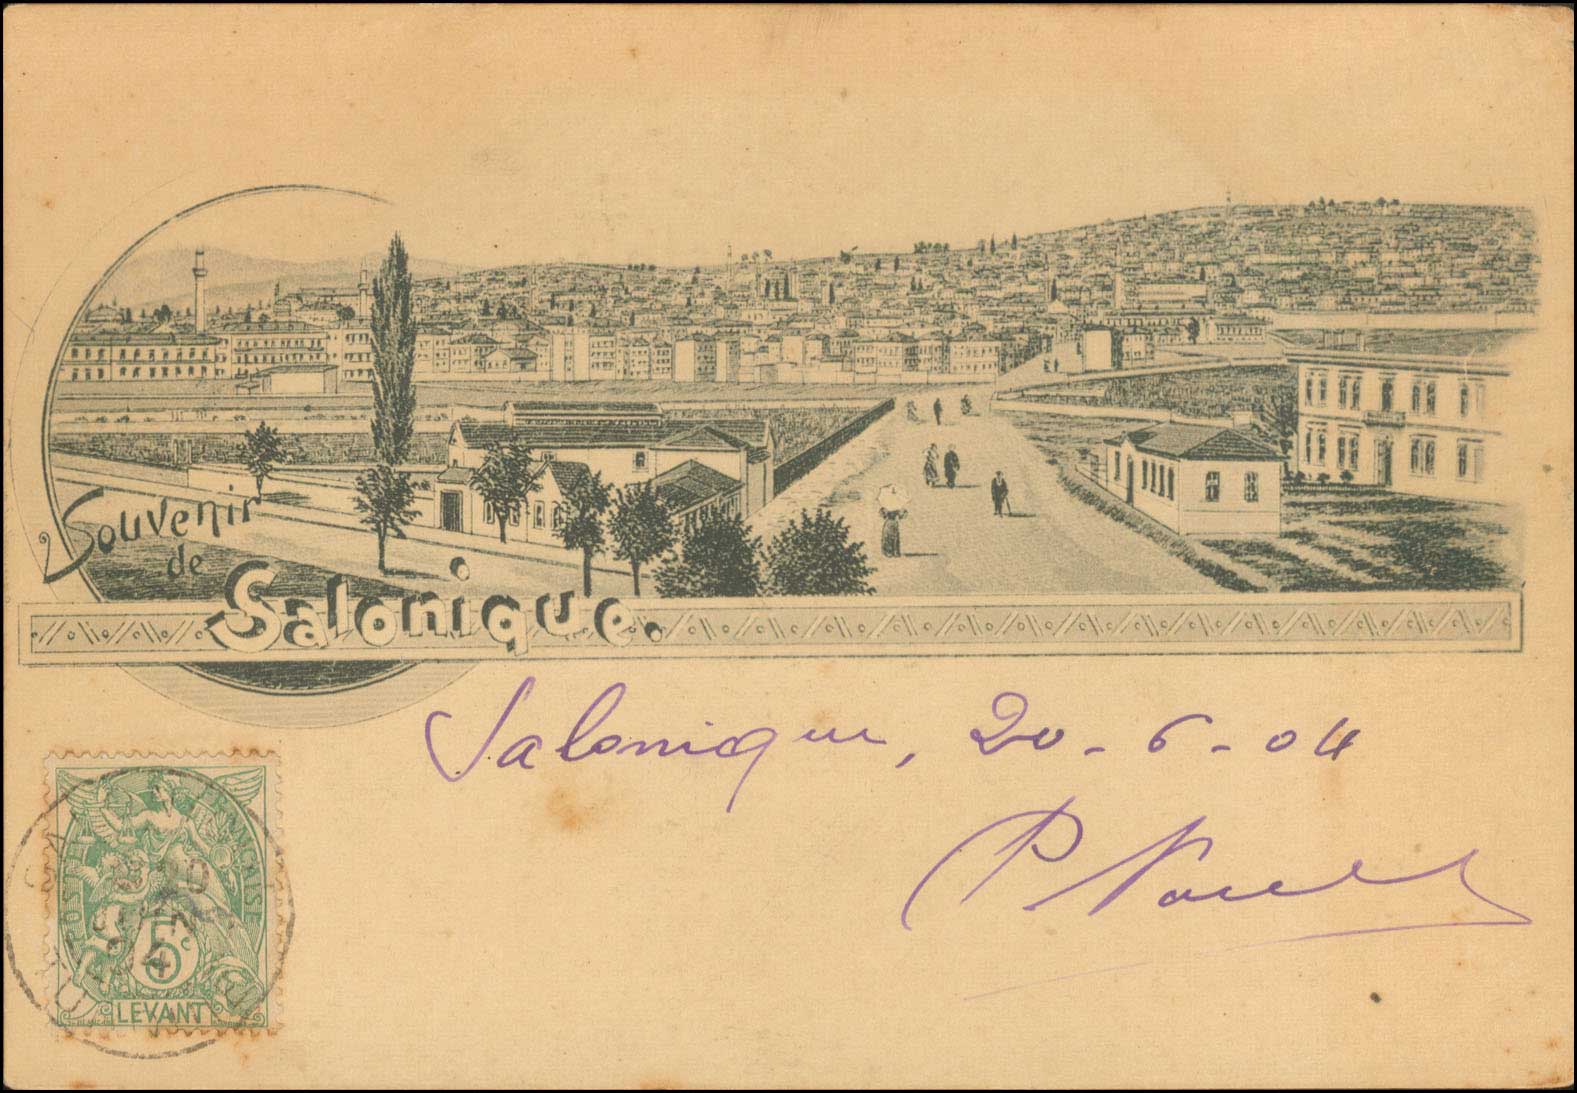 Souvenir
de
Salonique.
Salonique, 20-6-04
P.
POSTE FRANÇAISE
5c
LEVANT